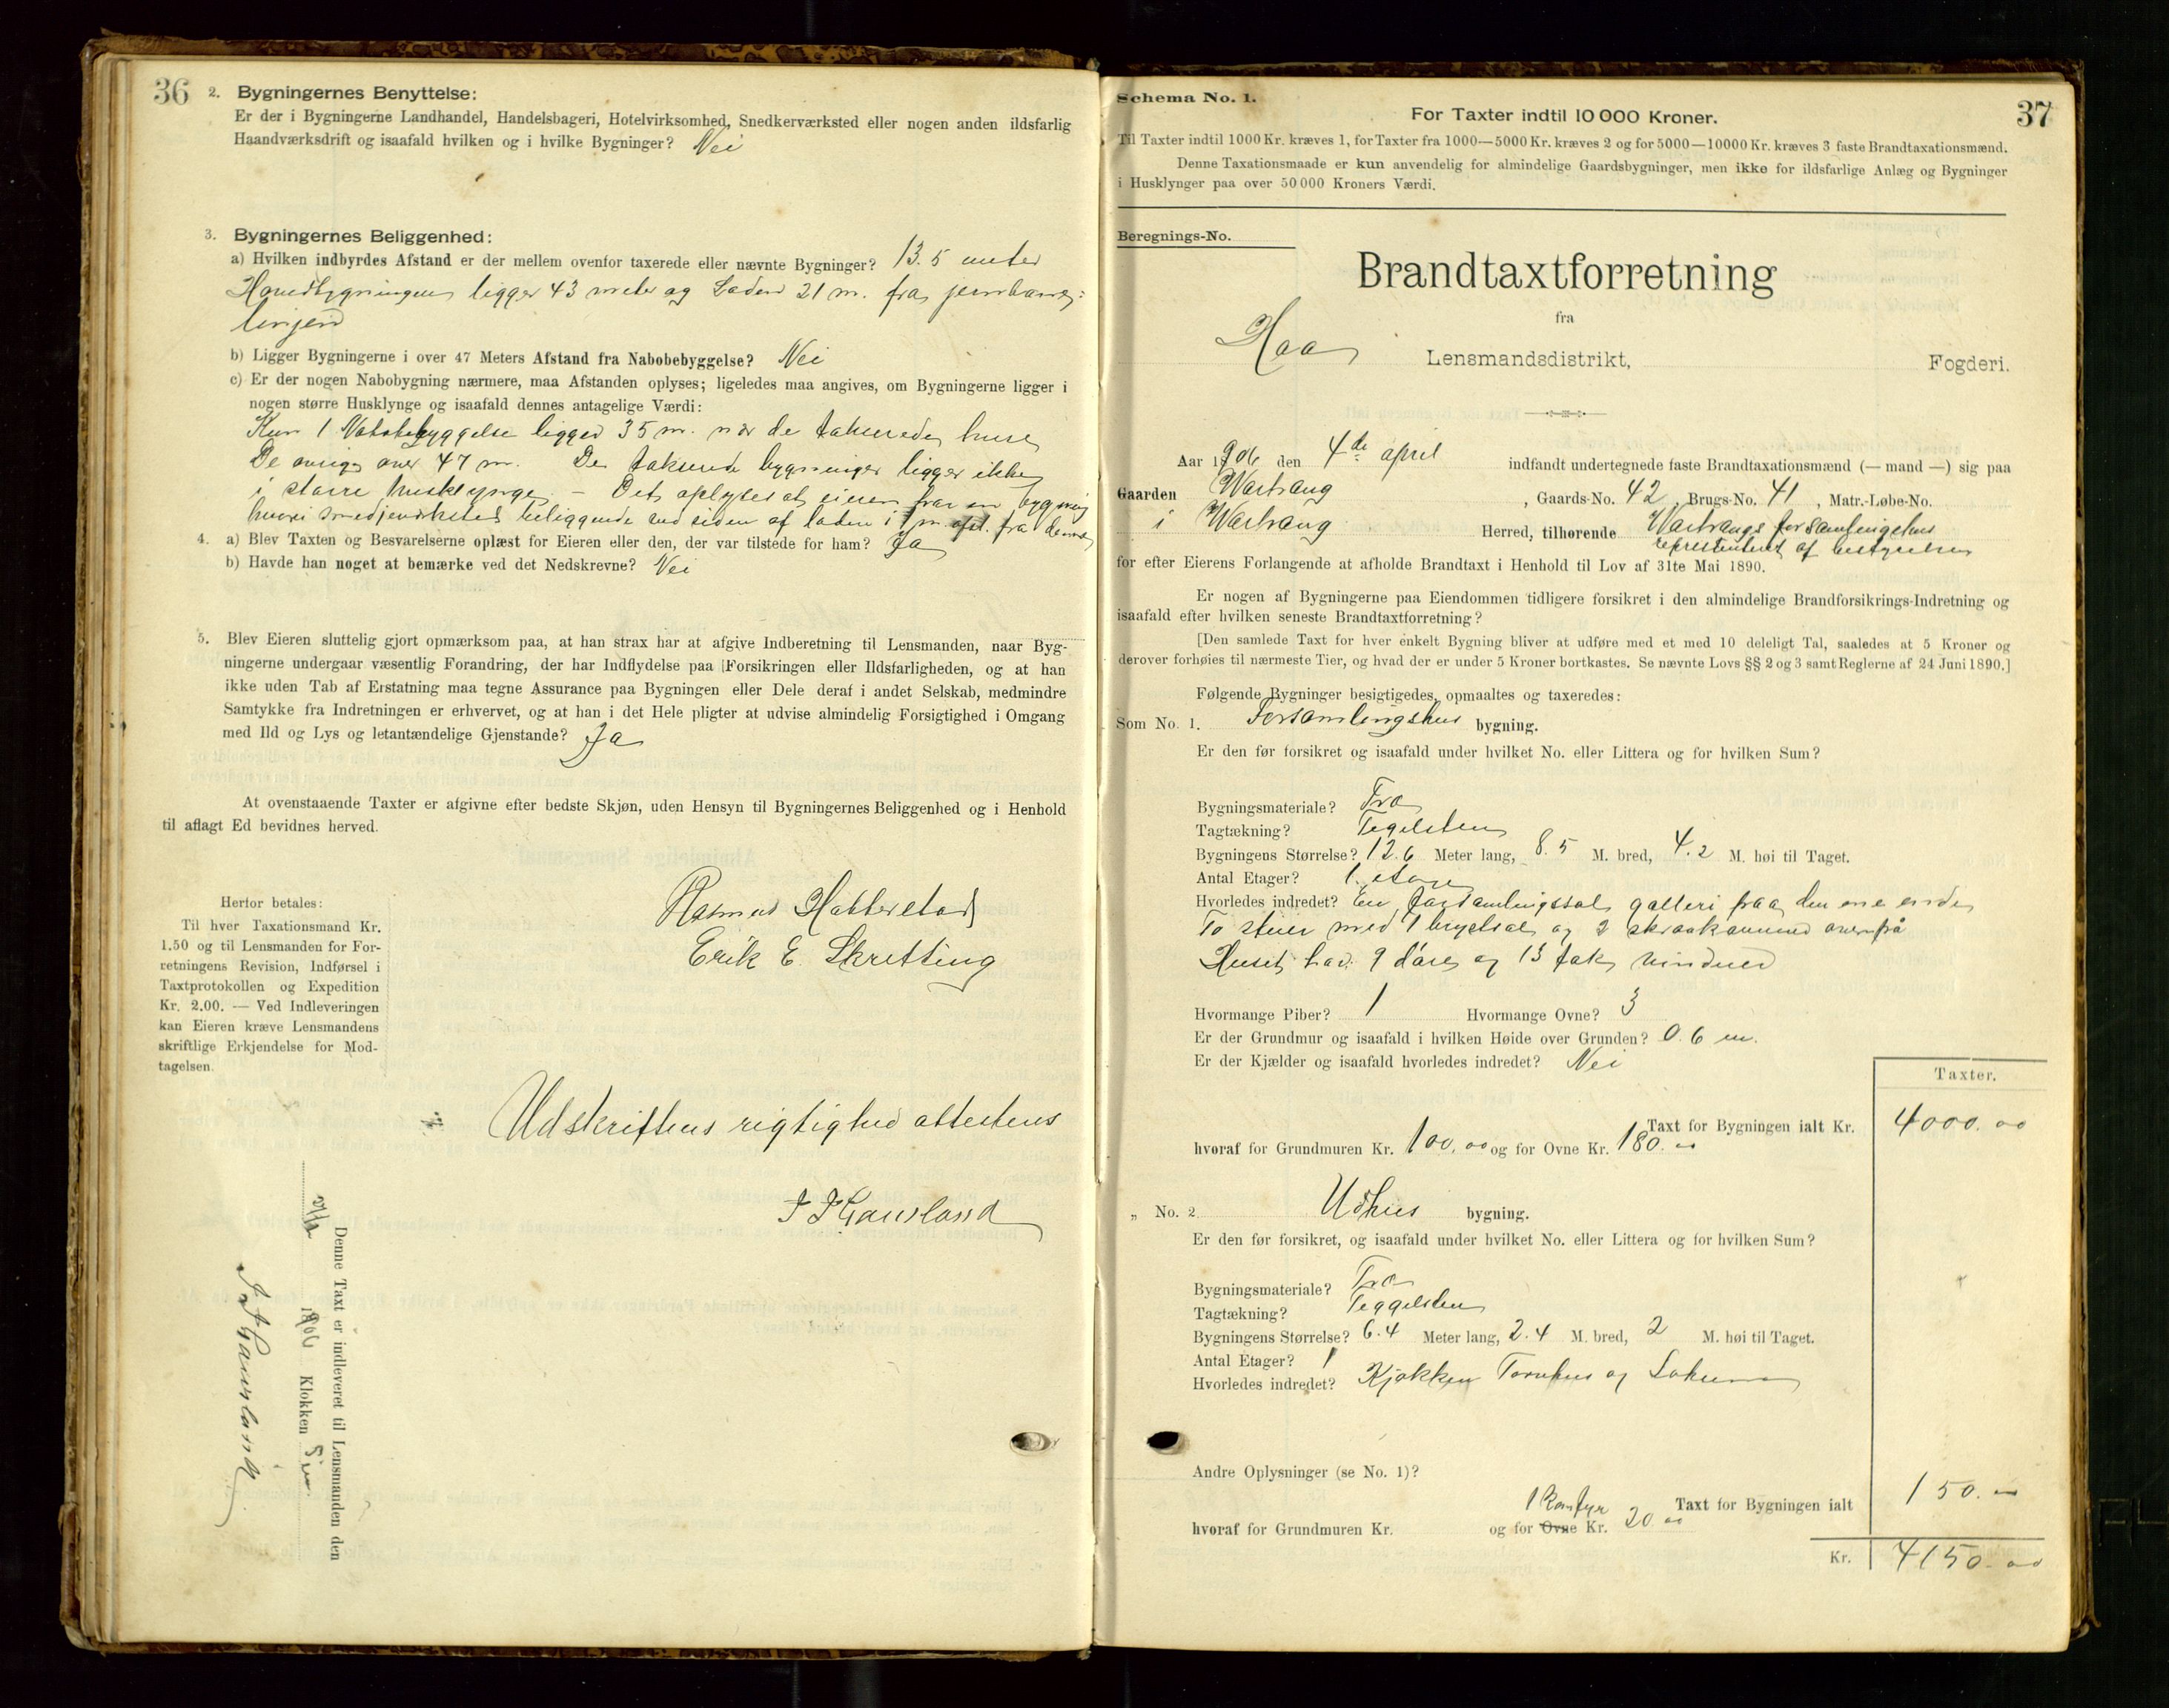 36
2. Bygningernes Benyttelse:
Er der i Bygningerne Landhandel, Handelsbageri, Hotelvirksomhed, Snedkerværksted eller nogen anden ildsfarlig
Haandværksdrift og isaafald hvilken og i hvilke Bygninger? Nei
3. Bygningernes Beliggenhed:
a) Hvilken indbyrdes Afstand er der mellem ovenfor taxerede eller nævnte Bygninger? 13.5 meter
Hovedbygningen ligger 43 meter og Laden 21 m. fra jernbane-
linjen
b) Ligger Bygningerne i over 47 Meters Afstand fra Nabobebyggelse? Nei
c) Er der nogen Nabobygning nærmere, maa Afstanden oplyses; ligeledes maa angives, om Bygningerne ligger i
nogen større Husklynge og isaafald dennes antagelige Værdi:
Kun 1 Nabobebyggelse ligger 35 m. nær de takserede huse
De øvrige over 47 m. De takserede bygninger ligger ikke
i større husklynge – Det oplyses at eieren har en bygning
hvori smedjeværksted beliggende ved siden af laden i 1 m. afst. fra denne
4. a) Blev Taxten og Besvarelserne oplæst for Eieren eller den, der var tilstede for ham? Ja
b) Havde han noget at bemærke ved det Nedskrevne? Nei
5. Blev Eieren sluttelig gjort opmærksom paa, at han strax har at afgive Indberetning til Lensmanden, naar Byg-
ningerne undergaar væsentlig Forandring, der har Indflydelse paa Forsikringen eller Ildsfarligheden, og at han
ikke uden Tab af Erstatning maa tegne Assurance paa Bygningen eller Dele deraf i andet Selskab, medmindre
Samtykke fra Indretningen er erhvervet, og at han i det Hele pligter at udvise almindelig Forsigtighed i Omgang
med Ild og Lys og letantændelige Gjenstande? Ja
At ovenstaaende Taxter er afgivne efter bedste Skjøn, uden Hensyn til Bygningernes Beliggenhed og i Henhold
til aflagt Ed bevidnes herved.
Rasmus Hatterstad
Erik E. Skretting
Herfor betales:
Til hver Taxationsmand Kr.
1.50 og til Lensmanden for For-
retningens Revision, Indførsel i
Taxtprotokollen og Expedition
Kr. 2.00. — Ved Indleveringen
kan Eieren kræve Lensmandens
skriftlige Erkjendelse for Mod-
tagelsen.
Udskriftens rigtighed attesteres
Denne Taxt er indleveret til Lensmanden den
1906 Klokken
37
Schema No. 1.
For Taxter indtil 10 000 Kroner.
Til Taxter indtil 1000 Kr. kræves 1, for Taxter fra 1000—5000 Kr. kræves 2 og for 5000—10000 Kr. kræves 3 faste Brandtaxationsmænd.
Denne Taxationsmaade er kun anvendelig for almindelige Gaardsbygninger, men ikke for ildsfarlige Anlæg og Bygninger
i Husklynger paa over 50 000 Kroners Værdi.
Beregnings-No.
Brandtaxtforretning
fra
Haa Lensmandsdistrikt, Fogderi.
Aar 1906 den 4de april indfandt undertegnede faste Brandtaxationsmænd (— mand —) sig paa
Gaarden Warhaug, Gaards-No. 42, Brugs-No. 41, Matr.-Løbe-No.
i Warhaug Herred, tilhørende Warhaugs forsamlingshus
representeret af bestyrelsen
for efter Eierens Forlangende at afholde Brandtaxt i Henhold til Lov af 31te Mai 1890.
Er nogen af Bygningerne paa Eiendommen tidligere forsikret i den almindelige Brandforsikrings-Indretning og
isaafald efter hvilken seneste Brandtaxtforretning?
[Den samlede Taxt for hver enkelt Bygning bliver at udføre med et med 10 deleligt Tal, saaledes at 5 Kroner og
derover forhøies til nærmeste Tier, og hvad der er under 5 Kroner bortkastes. Se nævnte Lovs §§ 2 og 3 samt Reglerne af 24 Juni 1890.]
Følgende Bygninger besigtigedes, opmaaltes og taxeredes:
Som No. 1. Forsamlingshus bygning.
Er den før forsikret og isaafald under hvilket No. eller Littera og for hvilken Sum?
Bygningsmateriale? Træ
Tagtækning? Tegelsten
Bygningens Størrelse? 12.6 Meter lang, 8.5 M. bred, 4.2 M. høi til Taget.
Antal Etager? 1. etage
Hvorledes indredet? En forsamlingssal, galleri paa den ene ende
To stuer med 1 brystsal og 2 skraakammer ovenpå
Huset har 9 døre og 13 fak vinduer
Hvormange Piber? 1 Hvormange Ovne? 3
Er der Grundmur og isaafald i hvilken Høide over Grunden? 0.6 m.
Er der Kjælder og isaafald hvorledes indredet? Nei
Taxter.
Taxt for Bygningen ialt Kr. 4000.00
hvoraf for Grundmuren Kr. 100.00 og for Ovne Kr. 180.00
„ No. 2. Udhus bygning.
Er den før forsikret, og isaafald under hvilket No. eller Littera og for hvilken Sum?
Bygningsmateriale? Træ
Tagtækning? Teggelsten
Bygningens Størrelse? 6.4 Meter lang, 2.4 M. bred, 2 M. høi til Taget.
Antal Etager? 1
Hvorledes indredet? Kjøkken Torvhus og Lokum
Andre Oplysninger (se No. 1)?
1 Komfyr Taxt for Bygningen ialt 150.00
hvoraf for Grundmuren Kr. og for Ovne Kr. 20.00
Kr. 4150.00